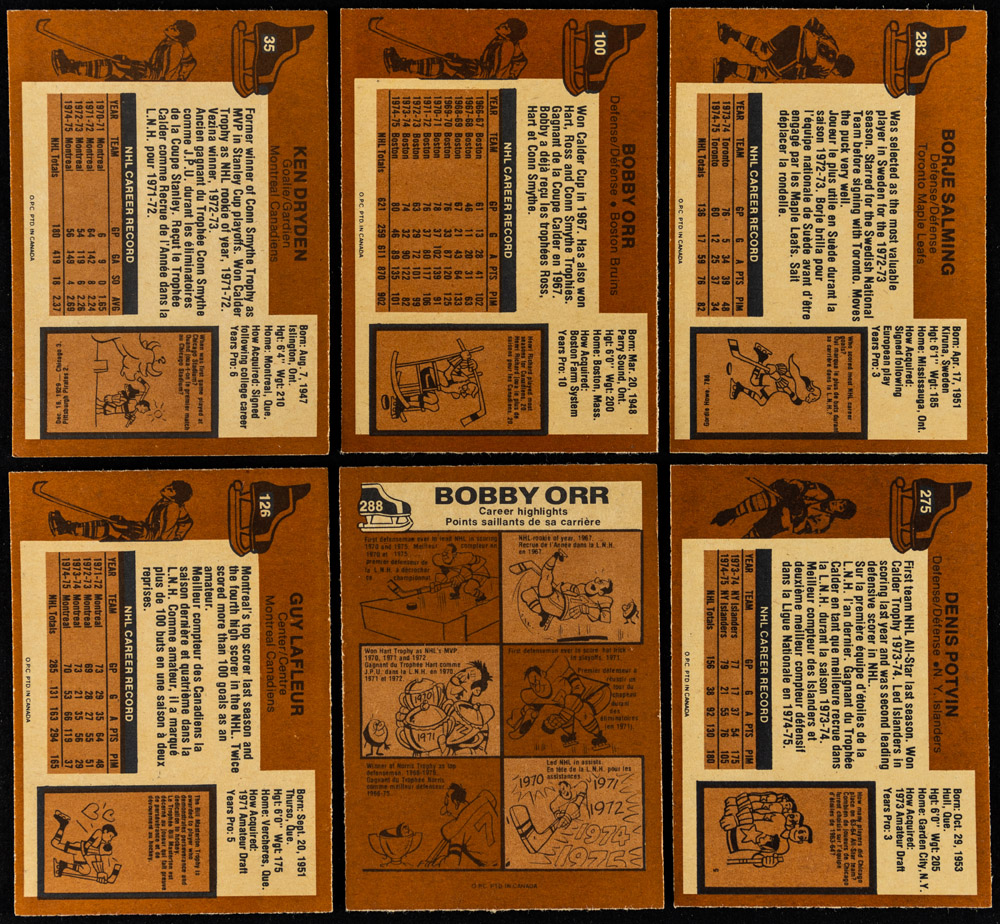 35
KEN DRYDEN
Goalie/Gardien
Montreal Canadiens
Former winner of Conn Smythe Trophy as
MVP in Stanley Cup playoffs. Won Calder
Trophy as NHL rookie of year, 1971-72.
Vezina winner, 1972-73.
Ancien gagnant du Trophée Conn Smythe
comme J.P.U. durant les éliminatoires
de la Coupe Stanley. Reçut le Trophée
Calder comme Recrue de l'Année dans la
L.N.H. pour 1971-72.
NHL CAREER RECORD
YEAR TEAM GP GA SO AVG
1970-71 Montreal 6 9 0 1.65
1971-72 Montreal 64 142 8 2.24
1972-73 Montreal 54 119 6 2.26
1974-75 Montreal 56 149 4 2.69
NHL Totals 180 419 18 2.37
O.P.C. PTD. IN CANADA
Born: Aug. 7, 1947
Islington, Ont.
Hgt: 6'4" Wgt: 210
Home: Montreal, Que.
How Acquired: Signed
following college career
Years Pro: 6
100
BOBBY ORR
Defense/Défense • Boston Bruins
Won Calder Cup in 1967. Has also won
Hart, Ross and Conn Smythe Trophies.
Gagnant de la Coupe Calder en 1967.
Bobby a déjà reçu les trophées Ross,
Hart et Conn Smythe.
NHL CAREER RECORD
YEAR TEAM GP G A PTS PIM
1966-67 Boston 61 13 28 41 102
1967-68 Boston 46 11 20 31 63
1968-69 Boston 67 21 43 64 133
1969-70 Boston 76 33 87 120 125
1970-71 Boston 78 37 102 139 91
1971-72 Boston 76 37 80 117 106
1972-73 Boston 63 29 72 101 99
1973-74 Boston 74 32 90 122 82
1974-75 Boston 80 46 89 135 101
NHL Totals 621 259 611 870 902
O.P.C. PTD. IN CANADA
Born: Mar. 20, 1948
Parry Sound, Ont.
Hgt: 6'0" Wgt: 200
Home: Boston, Mass.
How Acquired:
Boston Farm System
Years Pro: 10
283
BORJE SALMING
Defense/Défense
Toronto Maple Leafs
Was selected as the most valuable
player in Sweden for the 1972-73
season. Starred for the Swedish National
Team before signing with Toronto. Moves
the puck very well.
Joueur le plus utile en Suède durant la
saison 1972-73. Borje brilla pour
l'équipe nationale de Suède avant d'être
engagé par les Maple Leafs. Sait
déplacer la rondelle.
NHL CAREER RECORD
YEAR TEAM GP G A PTS PIM
1973-74 Toronto 76 5 34 39 48
1974-75 Toronto 60 12 25 37 34
NHL Totals 136 17 59 76 82
O.P.C. PTD. IN CANADA
Born: Apr. 17, 1951
Kiruna, Sweden
Hgt: 6'1" Wgt: 185
Home: Mississauga, Ont.
How Acquired:
Signed following
European play
Years Pro: 3
126
GUY LAFLEUR
Center/Centre
Montreal Canadiens
Montreal's top scorer last season and
the fourth high scorer in the NHL. Twice
scored more than 100 goals as an
amateur.
Meilleur compteur des Canadiens la
saison dernière et quatrième dans la
L.N.H. Comme amateur, il a marqué
plus de 100 buts en une saison à deux
reprises.
NHL CAREER RECORD
YEAR TEAM GP G A PTS PIM
1971-72 Montreal 73 29 35 64 48
1972-73 Montreal 69 28 27 55 51
1973-74 Montreal 73 21 35 56 29
1974-75 Montreal 70 53 66 119 37
NHL Totals 285 131 163 294 165
O.P.C. PTD. IN CANADA
Born: Sept. 20, 1951
Thurso, Que.
Hgt: 6'0" Wgt: 175
Home: Vercheres, Que.
How Acquired:
1971 Amateur Draft
Years Pro: 5
288
BOBBY ORR
Career highlights
Points saillants de sa carrière
First defenseman ever to lead NHL in scoring
1970 and 1975. Meilleur compteur en
1970 et 1975.
premier défenseur de
la L.N.H. à décrocher
ce championnat.
NHL rookie of year, 1967.
Recrue de l'Année dans la L.N.H.
en 1967.
Won Hart Trophy as NHL's MVP
1970, 1971 and 1972
Gagnant du Trophée Hart comme
J.P.U. dans la L.N.H. en 1970
1971 et 1972.
1970
1971
First defenseman ever to score hat trick
in playoffs, 1971.
Premier défenseur à
réussir un
tour du
chapeau
durant
des
éliminatoires
(en 1971).
Winner of Norris Trophy as top
defenseman 1968-1975.
Gagnant du Trophée Norris
comme meilleur défenseur
1968-75.
Led NHL in assists.
En tête de la L.N.H. pour les
assistances.
1970
1971
1972
1974
1975
O.P.C. PTD. IN CANADA
275
DENIS POTVIN
Defense/Défense • N.Y. Islanders
First team NHL All-Star last season. Won
Calder Trophy 1973-74. Led Islanders in
scoring last year and was second leading
defensive scorer in NHL.
Sur la première équipe d'étoiles de la
L.N.H. l'an dernier. Gagnant du Trophée
Calder en tant que meilleure recrue dans
la L.N.H. durant la saison 1973-74.
Meilleur compteur des Islanders et
deuxième meilleur compteur défensif
dans la Ligue Nationale en 1974-75.
NHL CAREER RECORD
YEAR TEAM GP G A PTS PIM
1973-74 NY Islanders 77 17 37 54 175
1974-75 NY Islanders 79 21 55 76 105
NHL Totals 156 38 92 130 180
O.P.C. PTD. IN CANADA
Born: Oct. 29, 1953
Hull, Que.
Hgt: 6'0" Wgt: 205
Home: Garden City, N.Y.
How Acquired:
1973 Amateur Draft
Years Pro: 3